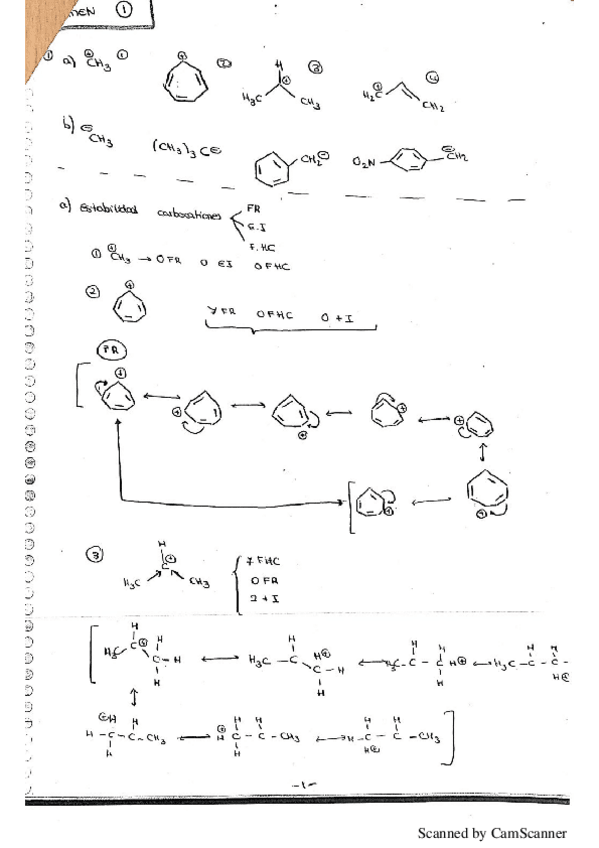 MEN ①
① a) ⊕CH₃ ① ⊕ ② H ⊕ H₃C CH₃ ③ H₂C⊕ CH₂ ④
b) ⊖CH₃ (CH₃)₃C⊖ CH₂⊖ O₂N ⊖CH₂
a) Estabilidad carbocationes FR
E.I
F.HC
① ⊕CH₃ → 0 FR 0 EI 0 FHC
② ⊕
7 FR 0 FHC 0 + I
FR
⊕ ⊕ ⊕ ⊕ ⊕
⊕ ⊕
③ H C⊕ H₃C CH₃
7 FHC
0 FR
2 + I
H H₃C C⊕ H C H H ↔ H H₃C C H⊕ C H H ↔ C H C H H⊕ H ↔ H₃C C H C H H⊕
⊕H H H C C CH₃ H ↔ H⊕ H H C C CH₃ H ↔ H H H C C CH₃ H⊕
-1-
Scanned by CamScanner